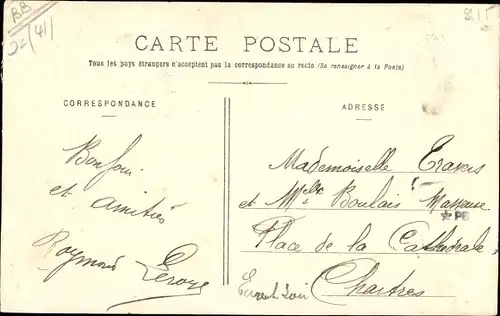 BB
(41)
CARTE POSTALE
Tous les pays étrangers n'acceptent pas la correspondance au recto (Se renseigner à la Poste)
CORRESPONDANCE
ADRESSE
Bonjour
et amitiés
Raymond Leroye
Mademoiselle Travers
et Melle Boulais Masseuse
PB
Place de la Cathédrale
Chartres
Eure et Loir